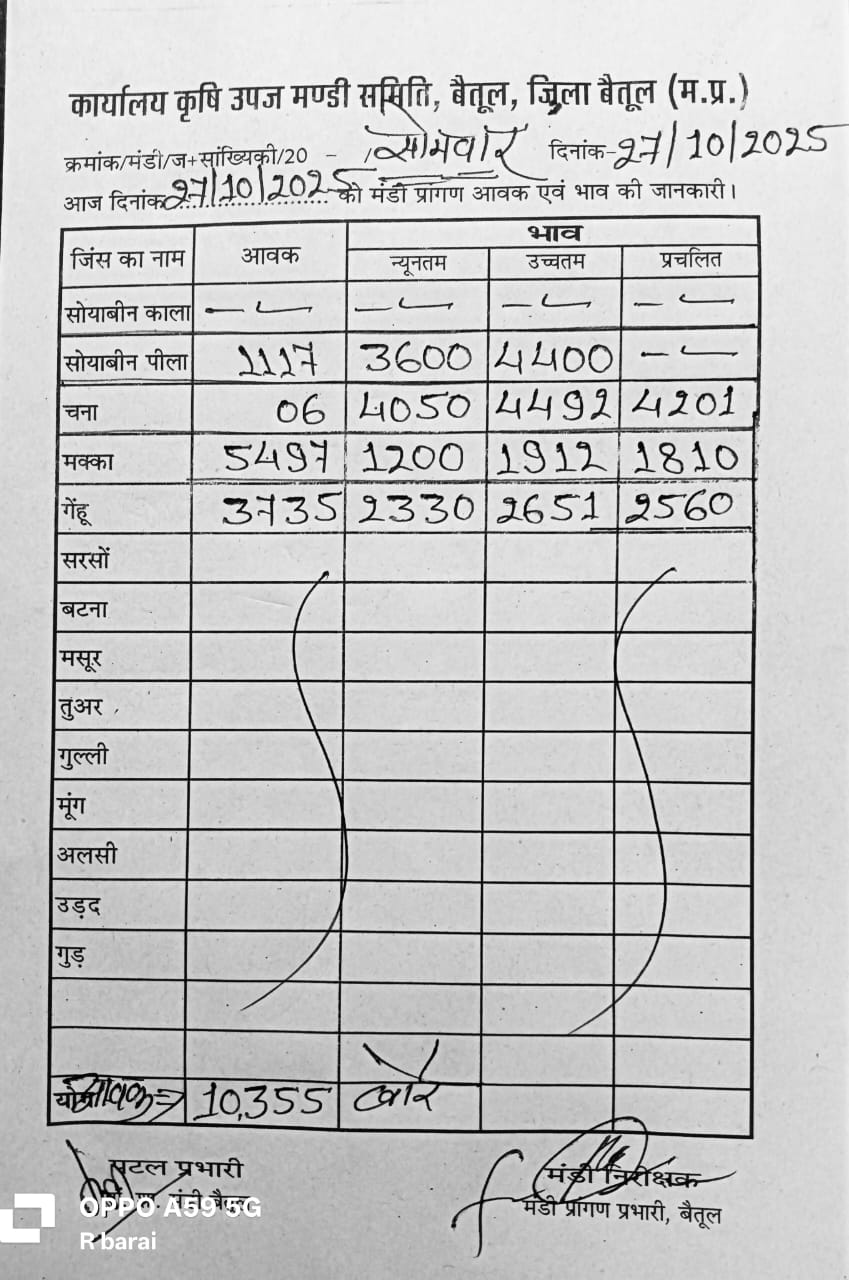 कार्यालय कृषि उपज मण्डी समिति, बैतूल, जिला बैतूल (म.प्र.)
क्रमांक/मंडी/ज+सांख्यिकी/20 - / सोमवार दिनांक-27/10/2025
आज दिनांक 27/10/2025 को मंडी प्रांगण आवक एवं भाव की जानकारी।
जिंस का नाम आवक भाव
न्यूनतम उच्चतम प्रचलित
सोयाबीन काला — — — —
सोयाबीन पीला 1117 3600 4400 —
चना 06 4050 4492 4201
मक्का 5497 1200 1912 1810
गेंहू 3735 2330 2651 2560
सरसों
बटना
मसूर
तुअर
गुल्ली
मूंग
अलसी
उड़द
गुड़
आवक => 10,355 बोरे
पटल प्रभारी मंडी निरीक्षक
मंडी बैतूल मंडी प्रांगण प्रभारी, बैतूल
OPPO A59 5G
R barai